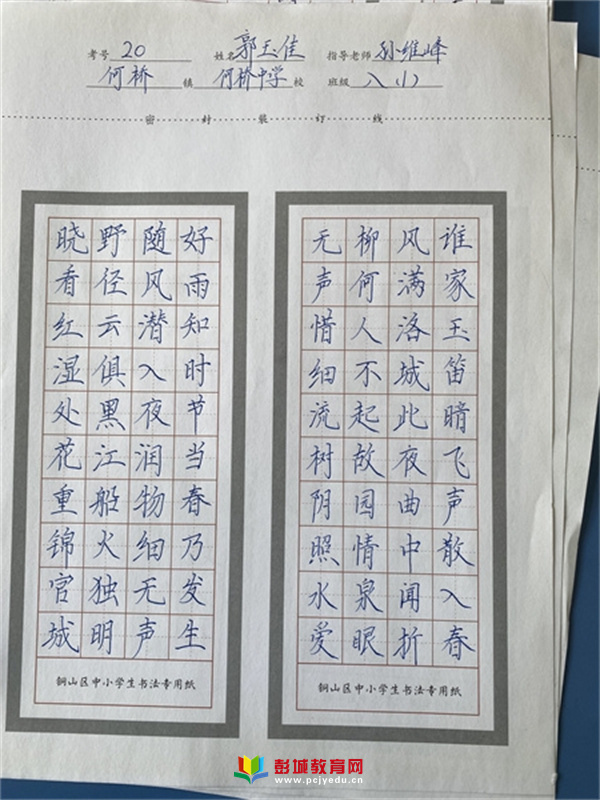 考号 20 姓名 郭玉佳 指导老师 孙维峰
何桥 镇 何桥中学 校 班级 八(1)
密 封 装 订 线
谁家玉笛暗飞声散入春
风满洛城此夜曲中闻折
柳何人不起故园情泉眼
无声惜细流树阴照水爱
铜山区中小学生书法专用纸
好雨知时节当春乃发生
随风潜入夜润物细无声
野径云俱黑江船火独明
晓看红湿处花重锦官城
铜山区中小学生书法专用纸
彭城教育网
www.pcjyedu.cn